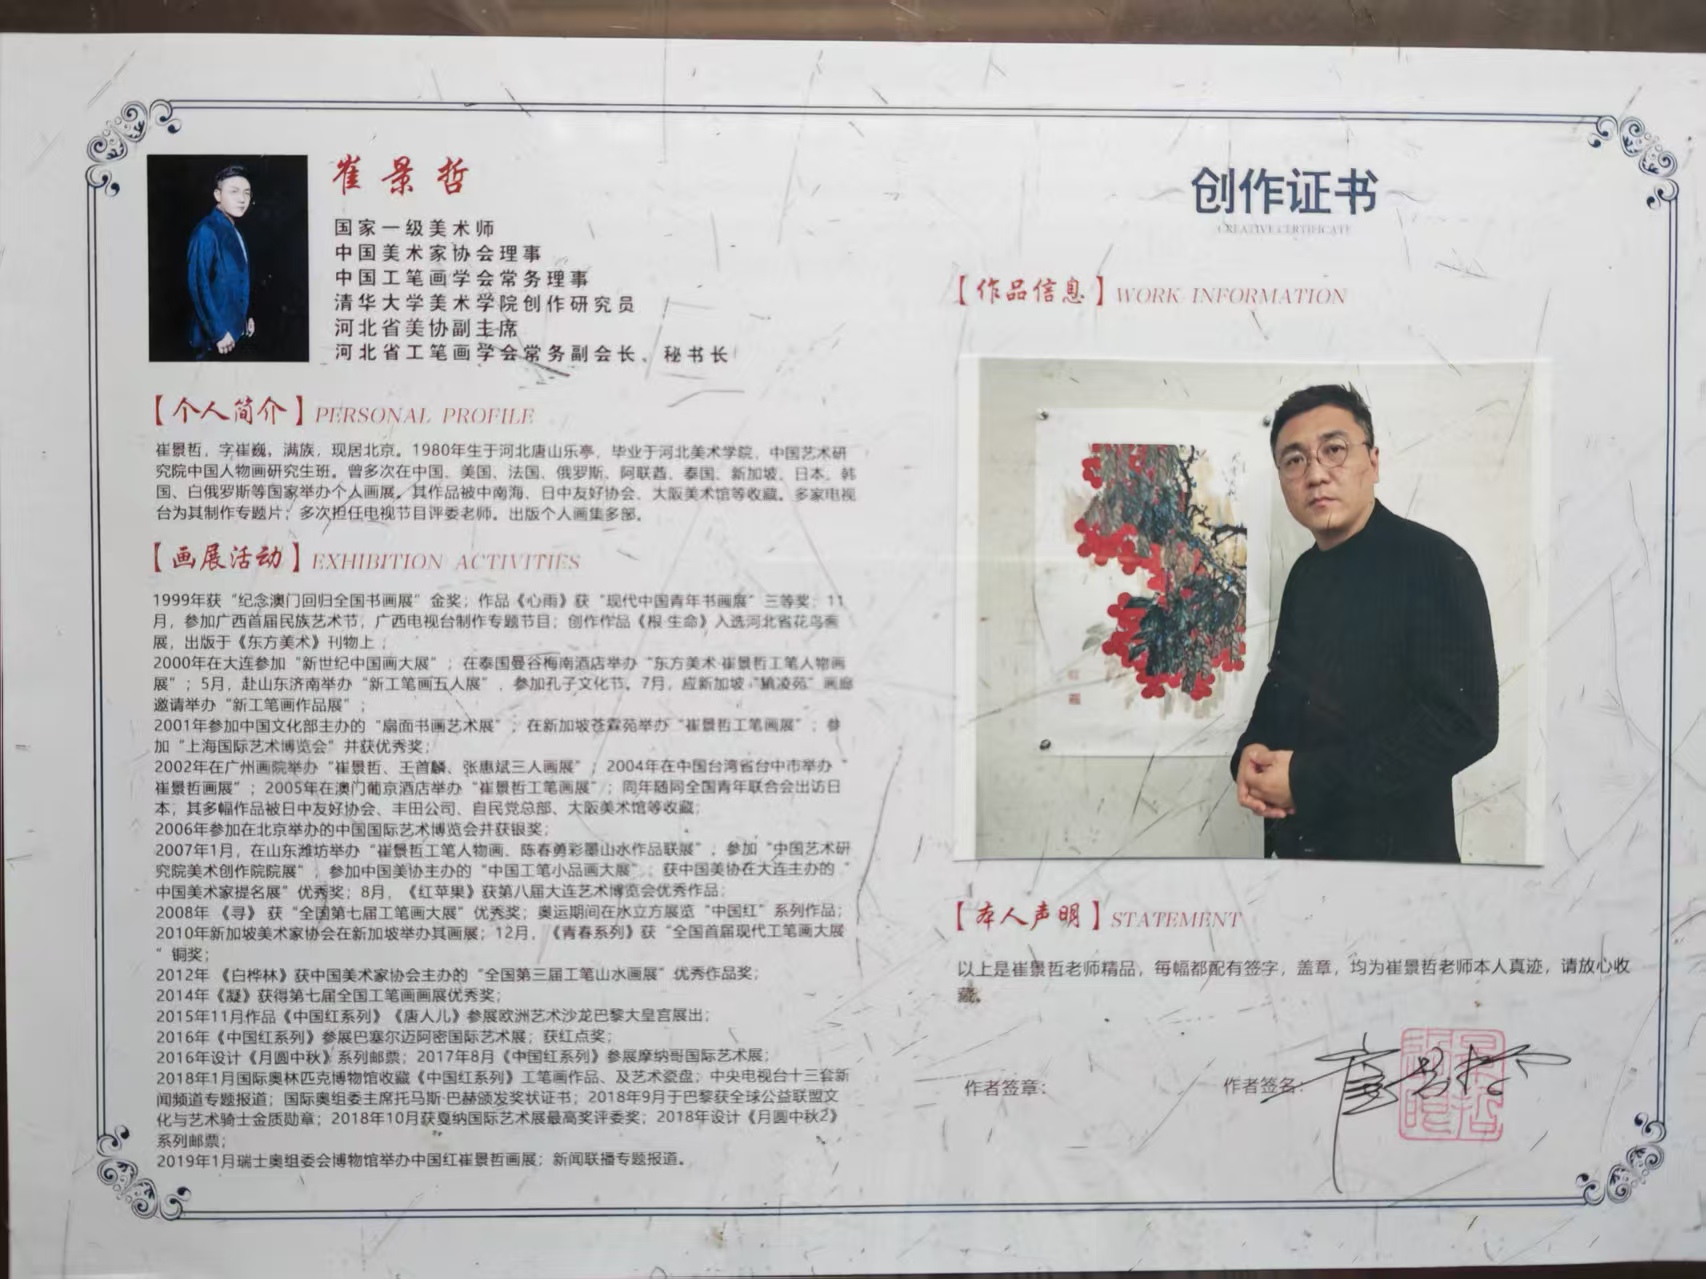 崔景哲
国家一级美术师
中国美术家协会理事
中国工笔画学会常务理事
清华大学美术学院创作研究员
河北省美协副主席
河北省工笔画学会常务副会长、秘书长
【个人简介】PERSONAL PROFILE
崔景哲，字崔巍，满族，现居北京。1980年生于河北唐山乐亭，毕业于河北美术学院，中国艺术研
究院中国人物画研究生班。曾多次在中国、美国、法国、俄罗斯、阿联酋、泰国、新加坡、日本、韩
国、白俄罗斯等国家举办个人画展。其作品被中南海、日中友好协会、大阪美术馆等收藏。多家电视
台为其制作专题片；多次担任电视节目评委老师。出版个人画集多部。
【画展活动】EXHIBITION ACTIVITIES
1999年获“纪念澳门回归全国书画展”金奖；作品《心雨》获“现代中国青年书画展”三等奖；11
月，参加广西首届民族艺术节，广西电视台制作专题节目；创作作品《根·生命》入选河北省花鸟画
展，出版于《东方美术》刊物上；
2000年在大连参加“新世纪中国画大展”；在泰国曼谷梅南酒店举办“东方美术·崔景哲工笔人物画
展”；5月，赴山东济南举办“新工笔画五人展”，参加孔子文化节。7月，应新加坡“凌苑”画廊
邀请举办“新工笔画作品展”；
2001年参加中国文化部主办的“扇面书画艺术展”；在新加坡苍霖苑举办“崔景哲工笔画展”；参
加“上海国际艺术博览会”并获优秀奖；
2002年在广州画院举办“崔景哲、王首麟、张惠斌三人画展”；2004年在中国台湾省台中市举办“
崔景哲画展”；2005年在澳门葡京酒店举办“崔景哲工笔画展”；同年随同全国青年联合会出访日
本，其多幅作品被日中友好协会、丰田公司、自民党总部、大阪美术馆等收藏；
2006年参加在北京举办的中国国际艺术博览会并获银奖；
2007年1月，在山东潍坊举办“崔景哲工笔人物画、陈春勇彩墨山水作品联展”，参加“中国艺术研
究院美术创作院院展”，参加中国美协主办的“中国工笔小品画大展”；获中国美协在大连主办的“
中国美术家提名展”优秀奖；8月，《红苹果》获第八届大连艺术博览会优秀作品；
2008年《寻》获“全国第七届工笔画大展”优秀奖；奥运期间在水立方展览“中国红”系列作品；
2010年新加坡美术家协会在新加坡举办其画展；12月，《青春系列》获“全国首届现代工笔画大展
”铜奖；
2012年《白桦林》获中国美术家协会主办的“全国第三届工笔山水画展”优秀作品奖；
2014年《凝》获得第七届全国工笔画画展优秀奖；
2015年11月作品《中国红系列》《唐人儿》参展欧洲艺术沙龙巴黎大皇宫展出；
2016年《中国红系列》参展巴塞尔迈阿密国际艺术展；获红点奖；
2016年设计《月圆中秋》系列邮票；2017年8月《中国红系列》参展摩纳哥国际艺术展；
2018年1月国际奥林匹克博物馆收藏《中国红系列》工笔画作品、及艺术瓷盘；中央电视台十三套新
闻频道专题报道；国际奥组委主席托马斯·巴赫颁发奖状证书；2018年9月于巴黎获全球公益联盟文
化与艺术骑士金质勋章；2018年10月获戛纳国际艺术展最高奖评委奖；2018年设计《月圆中秋2》
系列邮票；
2019年1月瑞士奥组委会博物馆举办中国红崔景哲画展；新闻联播专题报道。
创作证书
CREATIVE CERTIFICATE
【作品信息】WORK INFORMATION
【本人声明】STATEMENT
以上是崔景哲老师精品，每幅都配有签字，盖章，均为崔景哲老师本人真迹，请放心收
藏。
作者签章：
作者签名：崔景哲